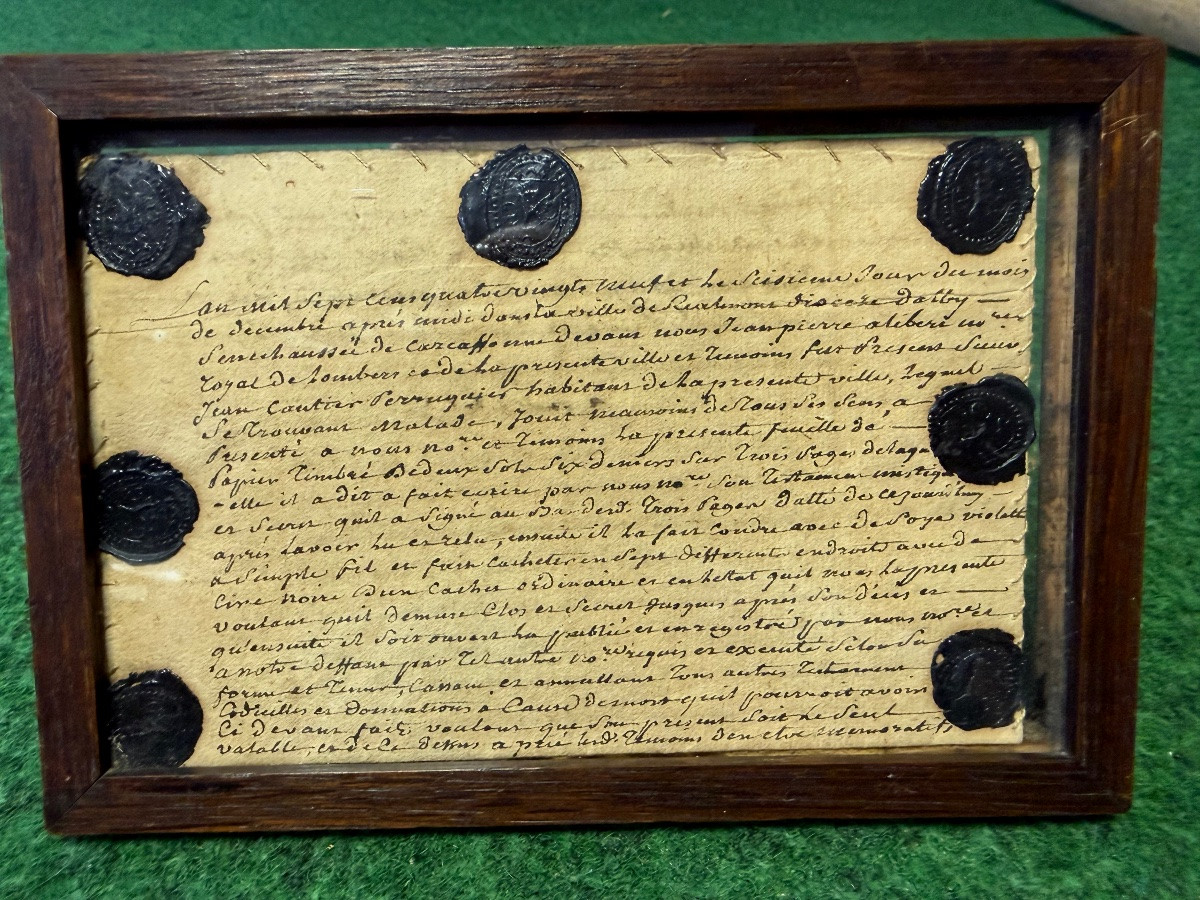 Lan mil sept cens quatre vingts neuf et le seisieme jour du mois
de decembre après midi dans la ville de Realmont dioceze dalby
Sennechaussée de Carcassonne devant nous Jean pierre aliberi no.re
royal de Lombers et de la presente ville et temoins fut present Sieur
Jean Cautier Perruquier habitant de la presente ville, Lequel
se trouvant malade, jouit neamoins de tous ses sens a
presenté a nous no.re et temoins la presente feuille de
Papier timbré de deux sols six deniers sur trois pages de laqu
-elle il a dit a fait ecrire par nous no.re son testament mistiq
et secret quil a signé au bas desd. trois pages datté de cejourdhuy
après lavoir lu et relu, ensuite il la fait coudre avec de soye violette
a simple fil et fait cacheter en sept differents endroits avec de
cire noire dun cachet ordinaire et en letat quil nous la presente
voulant quil demure clos et secret jusques après son décès et
qu'ensuite il soit ouvert la publié et enregistré par nous no.re et
a notre deffaut par tel autre no.re requis et executé selon sa
forme et tenur, Cassant et annullant tous autres testament
Codicilles et donnations à Cause de mort quil pourroit avoir
Ci devant fait, voulant que son present soit le seul
valable, et de ce dessus a prié lesd. temoins den etre memoratifs